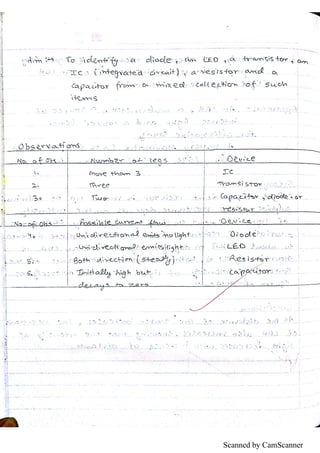 Aim :- To identify a diode, an LED, a transistor, an
IC (integrated circuit), a resistor and a
capacitor from a mixed collection of such
items
Observations
No. of obs. Number of legs Device
1. more than 3 IC
2. Three Transistor
3. Two Capacitor, diode, or
resistor
No. of Obs. Possible current flow Device
4. Unidirectional emits no light Diode
Unidirectional emits light LED
5. Both direction (steady) Resistor
6. Initially high but Capacitor
decays to zero.
Scanned by CamScanner